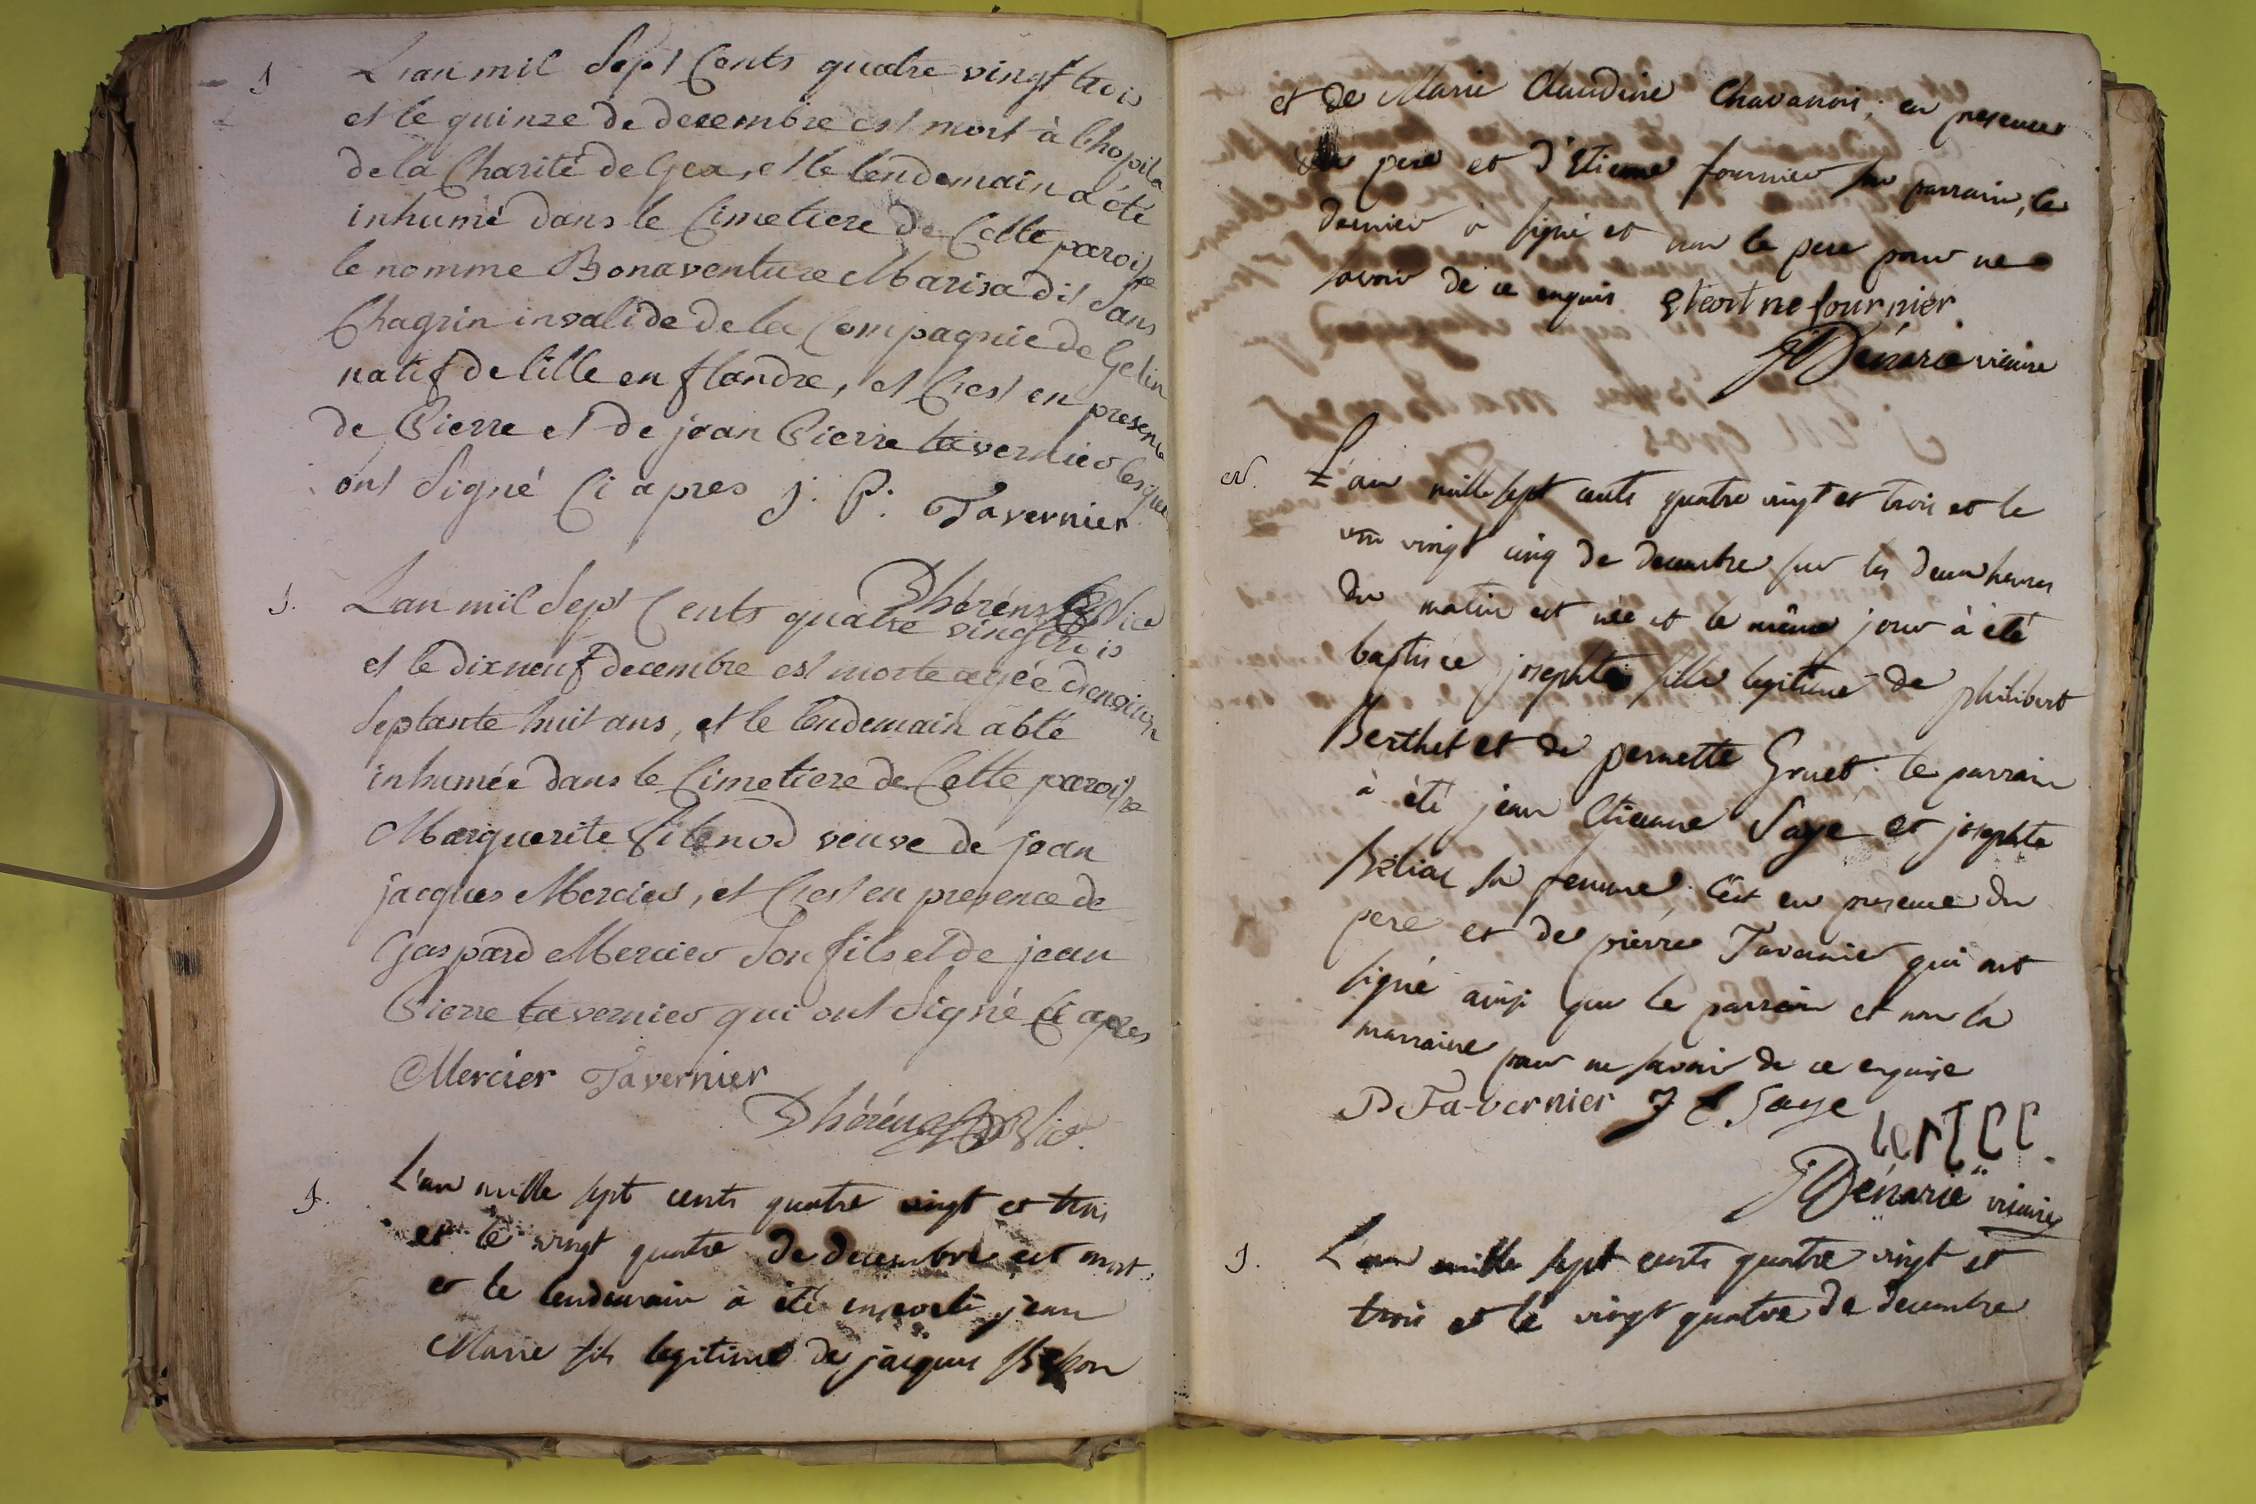 J
L'an mil Sept Cents quatre vingt trois
et le quinze de decembre est mort à l'hopital
de la Charité de Gex, et le lendemain a été
inhumé dans le Cimetiere de Cette paroisse
le nomme Bonaventure Marisa dit Sans
Chagrin invalide de la Compagnie de Gelin
natif de lille en flandre, et C'est en presence
de Pierre et de jean Pierre tavernier lesquel
ont Signé Ci apres J. P. Tavernier
J.
L'an mil Sept Cents quatre vingt trois
et le dix neuf decembre est morte agée d'environ
Septante huit ans, et le lendemain a été
inhumée dans le Cimetiere de Cette paroisse
Marguerite veuve de jean
jacques Mercier, et C'est en presence de
Gaspard Mercier Son fils et de jean
Pierre tavernier qui ont Signé Ci apres
Mercier Tavernier
J.
L'an mille sept cents quatre vingt et trois
et le vingt quatre de decembre est mort
et le lendemain à été enseveli jean
Marie fils legitime de jacques
et de Marie Claudine Chavanon, en presence
du pere et d'Etienne fournier son parrain, le
dernier à signé et non le pere pour ne
savoir de ce enquis Eteinne fournier
Dénarié vicaire
N.
L'an mille sept cents quatre vingt et trois et le
vingt cinq de decembre sur les deux heures
du matin est née et le même jour à été
baptisée josephte fille legitime de philibert
Berthet et de pernette Gruet. le parrain
à été jean Etienne Saye et josephte
Béliar sa femme. C'est en presence du
pere et de pierre Tavernier qui ont
signé ainsi que le parrain et non la
marraine pour ne savoir de ce enquise
P Tavernier J E Saye
Dénarié vicaire
J.
L'an mille sept cents quatre vingt et
trois et le vingt quatre de decembre